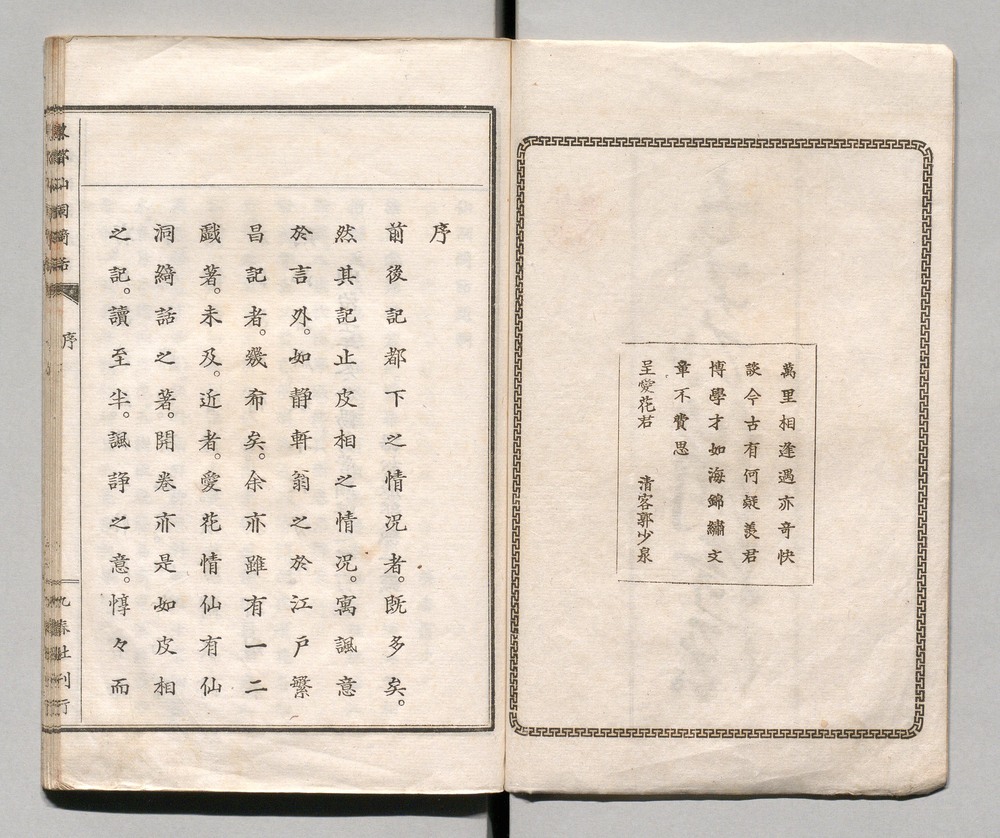 萬里相逢遇亦奇快
談今古有何疑羨君
博學才如海錦繡文
章不費思
呈愛花君　清客郭少泉
序
前後記都下之情況者。既多矣。
然其記止皮相之情況。寓諷意
於言外。如静軒翁之於江戸繁
昌記者。幾希矣。余亦雖有一二
戯著。未及。近者。愛花情仙有仙
洞綺話之著。開巻亦是如皮相
之記。讀至半。諷諍之意。惇々而
仙洞綺話
序
九春社刊行